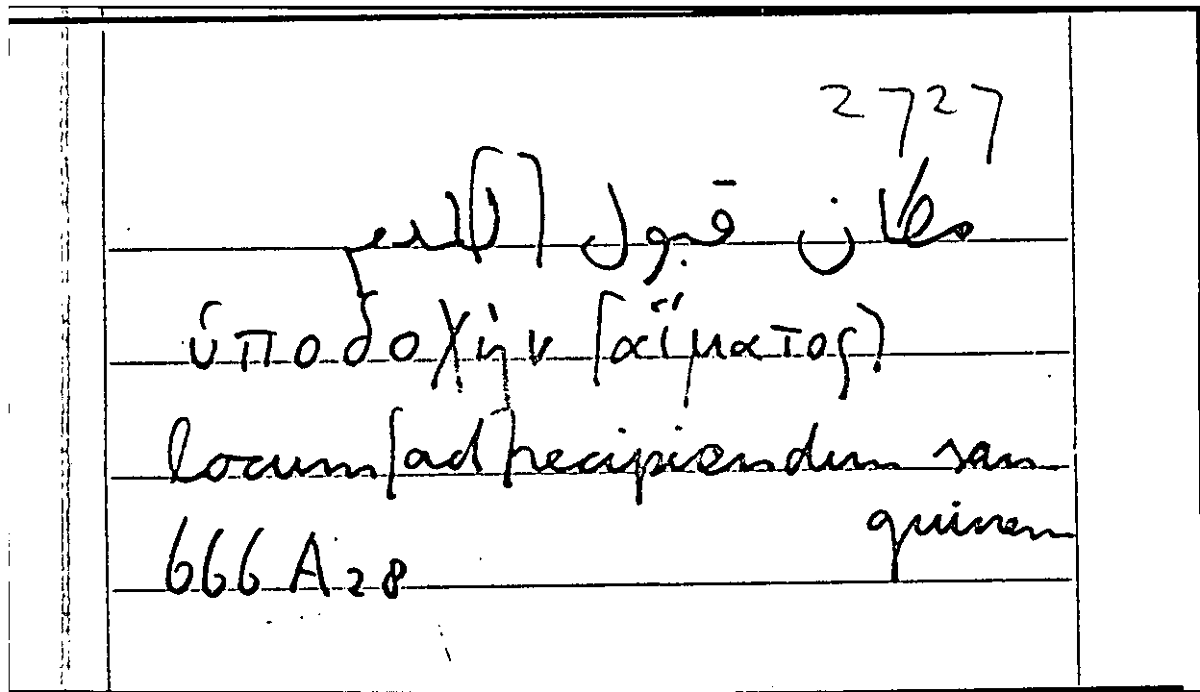 2727
مكان قبول [للدم]
ὑποδοχὴν [αἵματος]
locum [ad] recipiendum san
guinem
666 A 28